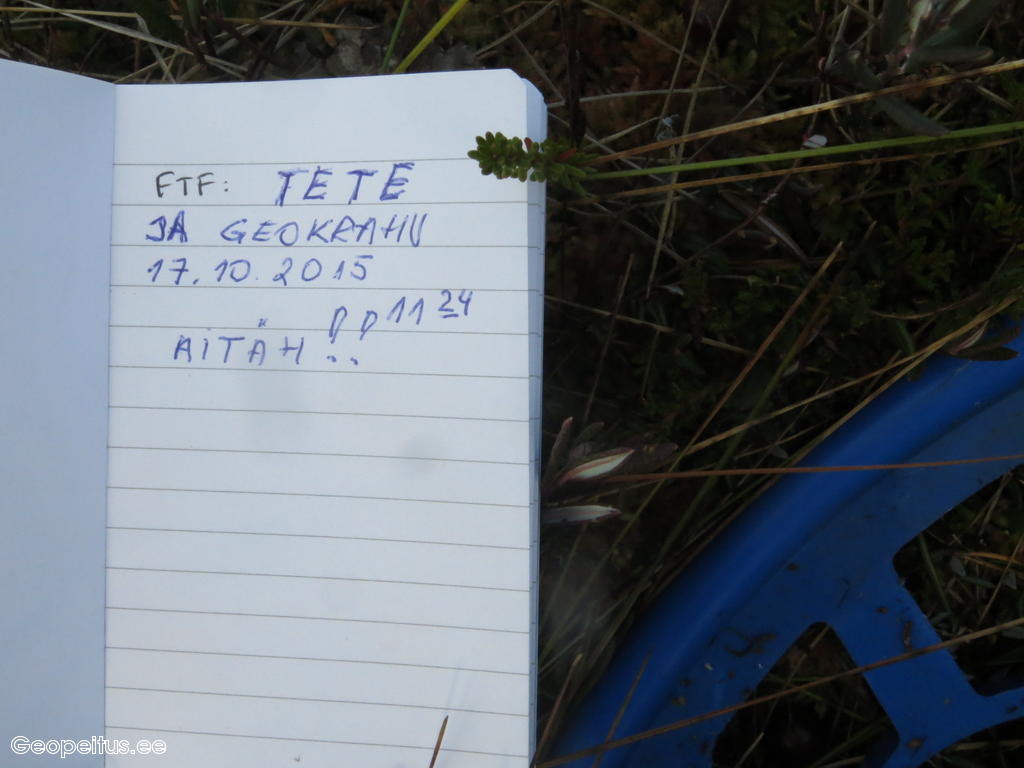 FTF: TETE
JA GEOKRAHV
17.10.2015
11 24
AITÄH!!
Geopeitus.ee